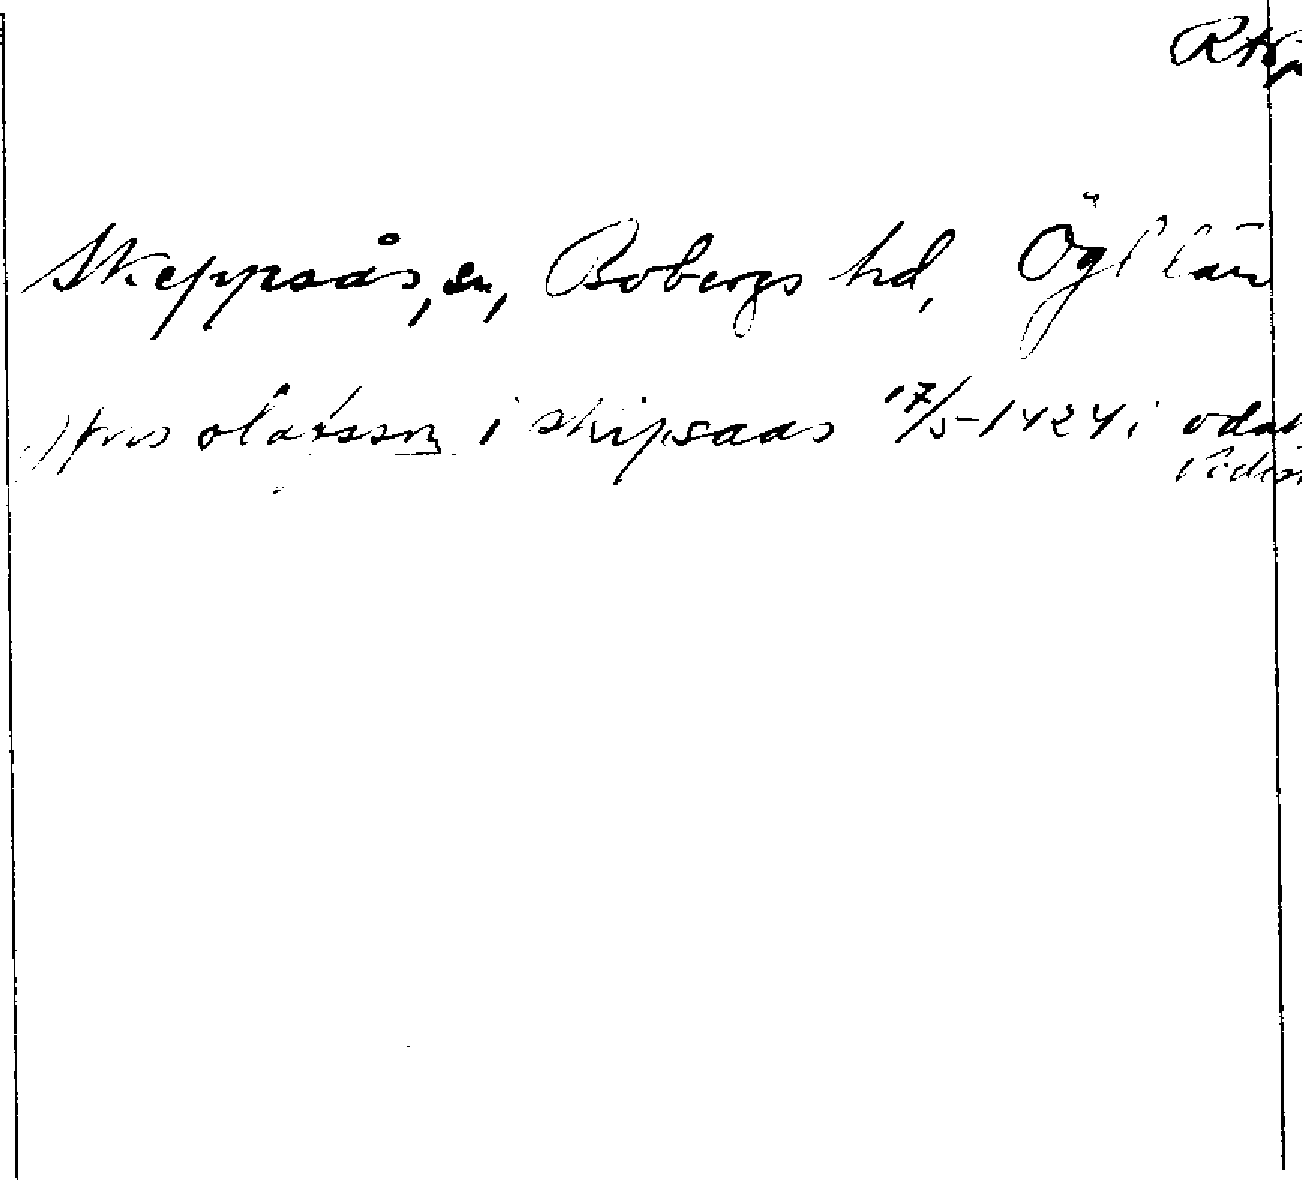 Skeppsås, sn, Bobergs hd, Ögl län
olafsson i skipsaas 17/5-1424 i odat